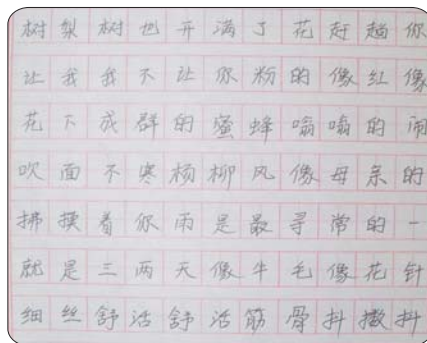 树梨树也开满了花赶趟你
让我我不让你粉的像红像
花下成群的蜜蜂嗡嗡的闹
吹面不寒杨柳风像母亲的
拂摸着你雨是最寻常的一
就是三两天像牛毛像花针
细丝舒活舒活筋骨抖擞抖